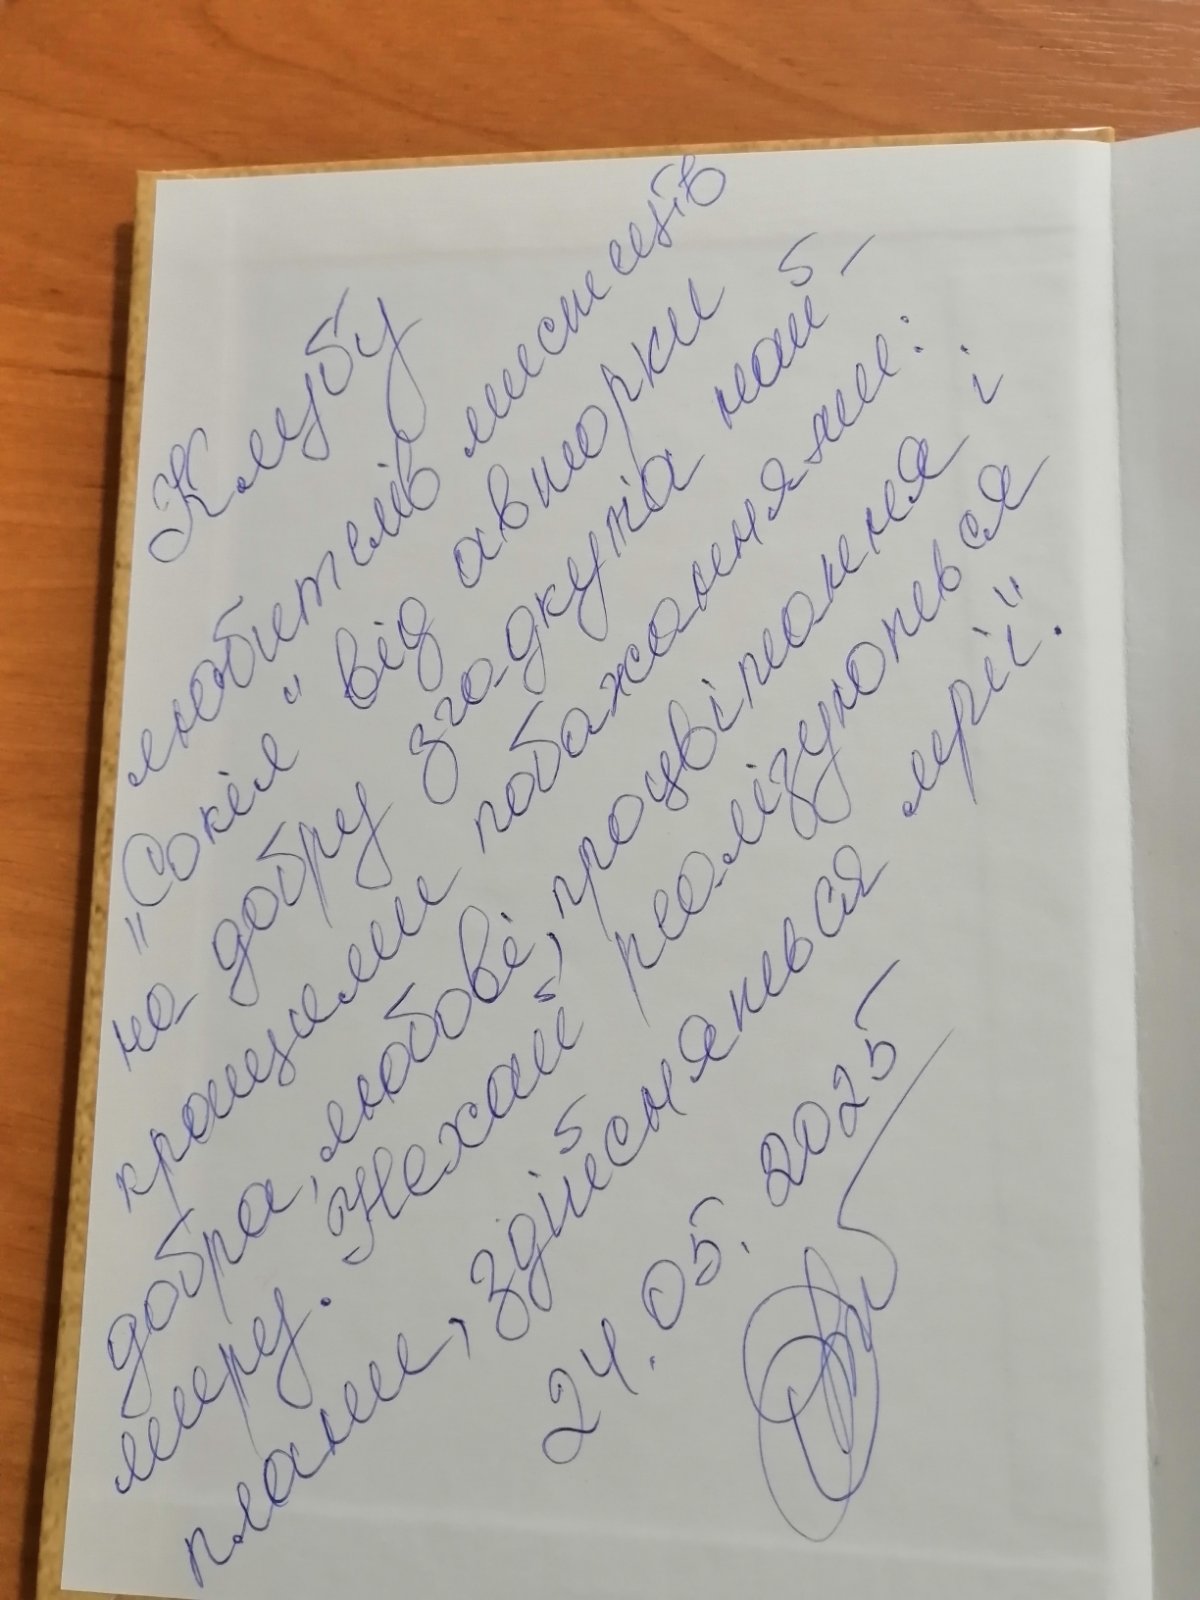 Клубу
любителів мистецтв
"Сокіл" від авторки
на добру згадку та най-
кращими побажаннями:
добра, любові, процвітання і
миру. Нехай реалізуються
плани, здійсняться мрії".
24.05.2025